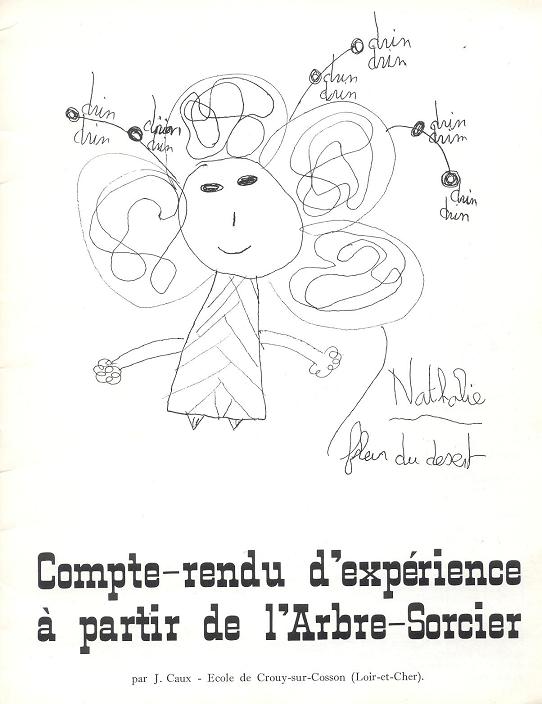 drin
drin
drin
drin
drin
drin
drin
drin
drin
drin
drin
drin
Nathalie
fleur du desert
Compte-rendu d'expérience
à partir de l'Arbre-Sorcier
par J. Caux - Ecole de Crouy-sur-Cosson (Loir-et-Cher).